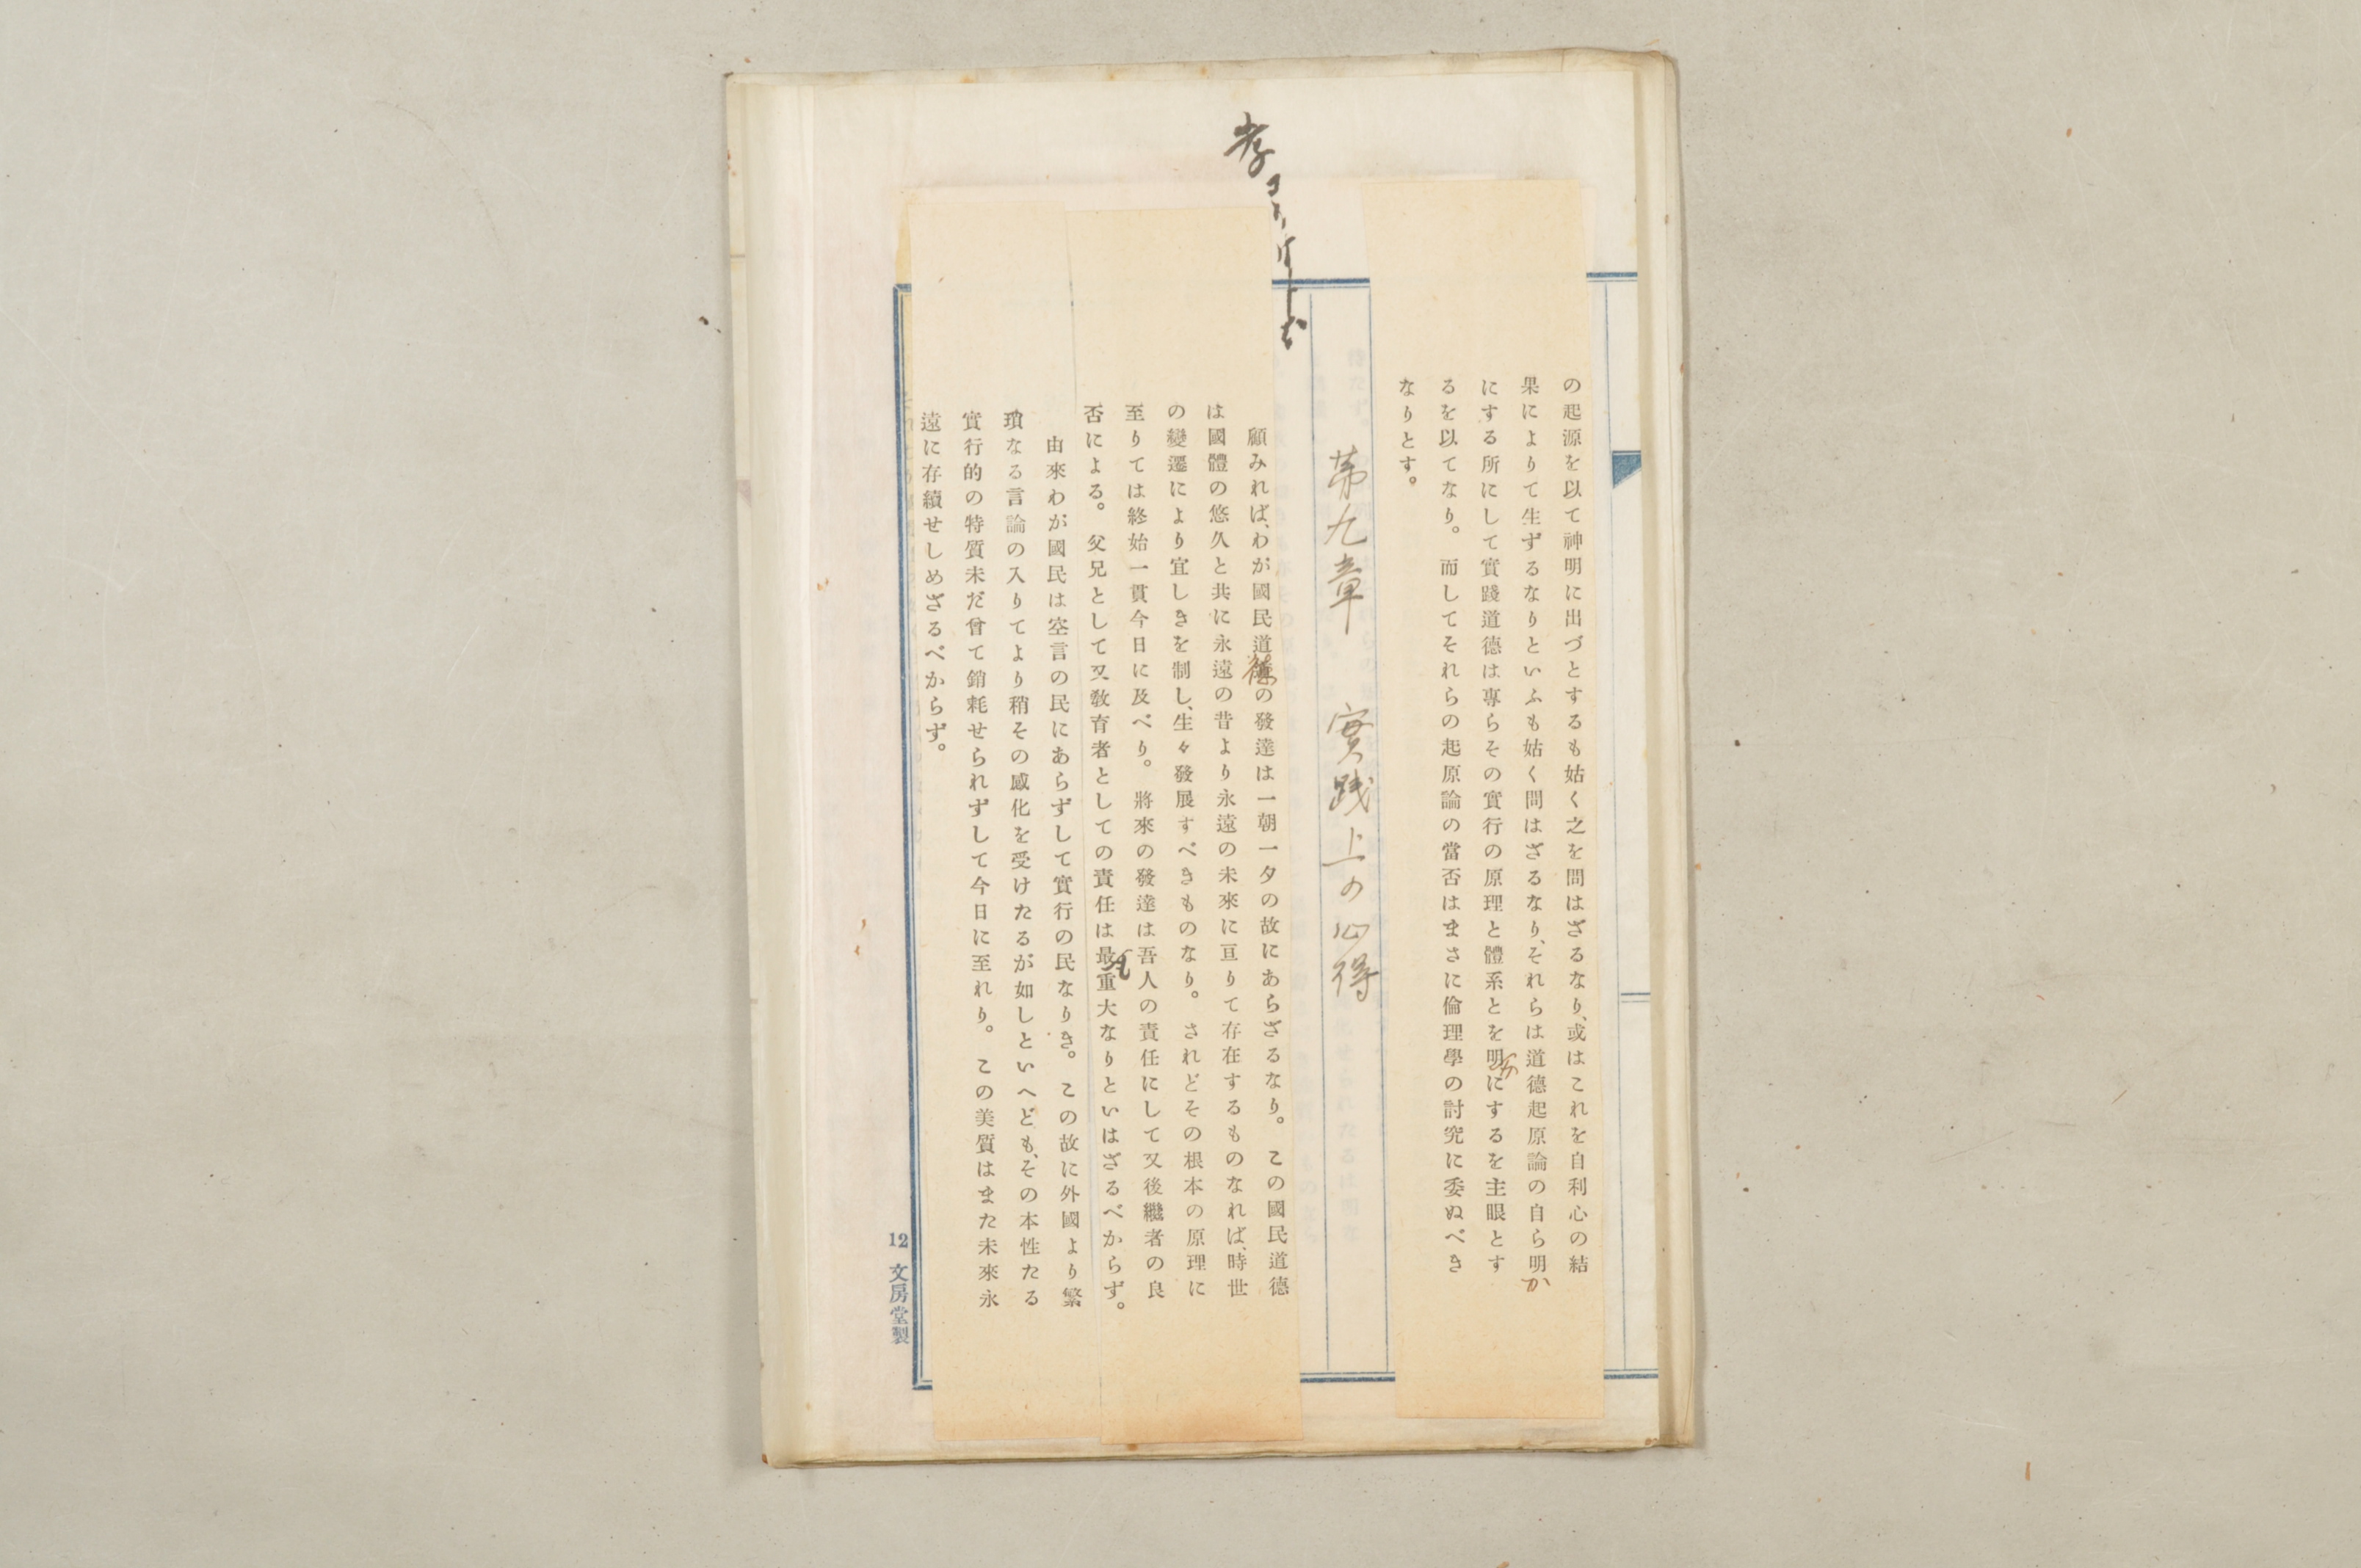 の起源を以て神明に出づとするも姑く之を問はざるなり、或はこれを自利心の結
果によりて生ずるなりといふも姑く問はざるなり、それらは道德起原論の自ら明か
にする所にして實踐道德は專らその實行の原理と體系とを明かにするを主眼とす
るを以てなり。而してそれらの起原論の當否はまさに倫理學の討究に委ぬべき
なりとす。
第九章 實践上の心得
顧みれば、わが國民道德の發達は一朝一夕の故にあらざるなり。この國民道德
は國體の悠久と共に永遠の昔より永遠の未來に亘りて存在するものなれば、時世
の變遷により宜しきを制し、生々發展すべきものなり。されどその根本の原理に
至りては終始一貫今日に及べり。將來の發達は吾人の責任にして又後繼者の良
否による。父兄として又敎育者としての責任は最重大なりといはざるべからず。
由來わが國民は空言の民にあらずして實行の民なりき。この故に外國より繁
瑣なる言論の入りてより稍その感化を受けたるが如しといへども、その本性たる
實行的の特質未だ曾て銷耗せられずして今日に至れり。この美質はまた未來永
遠に存續せしめざるべからず。
12 文房堂製